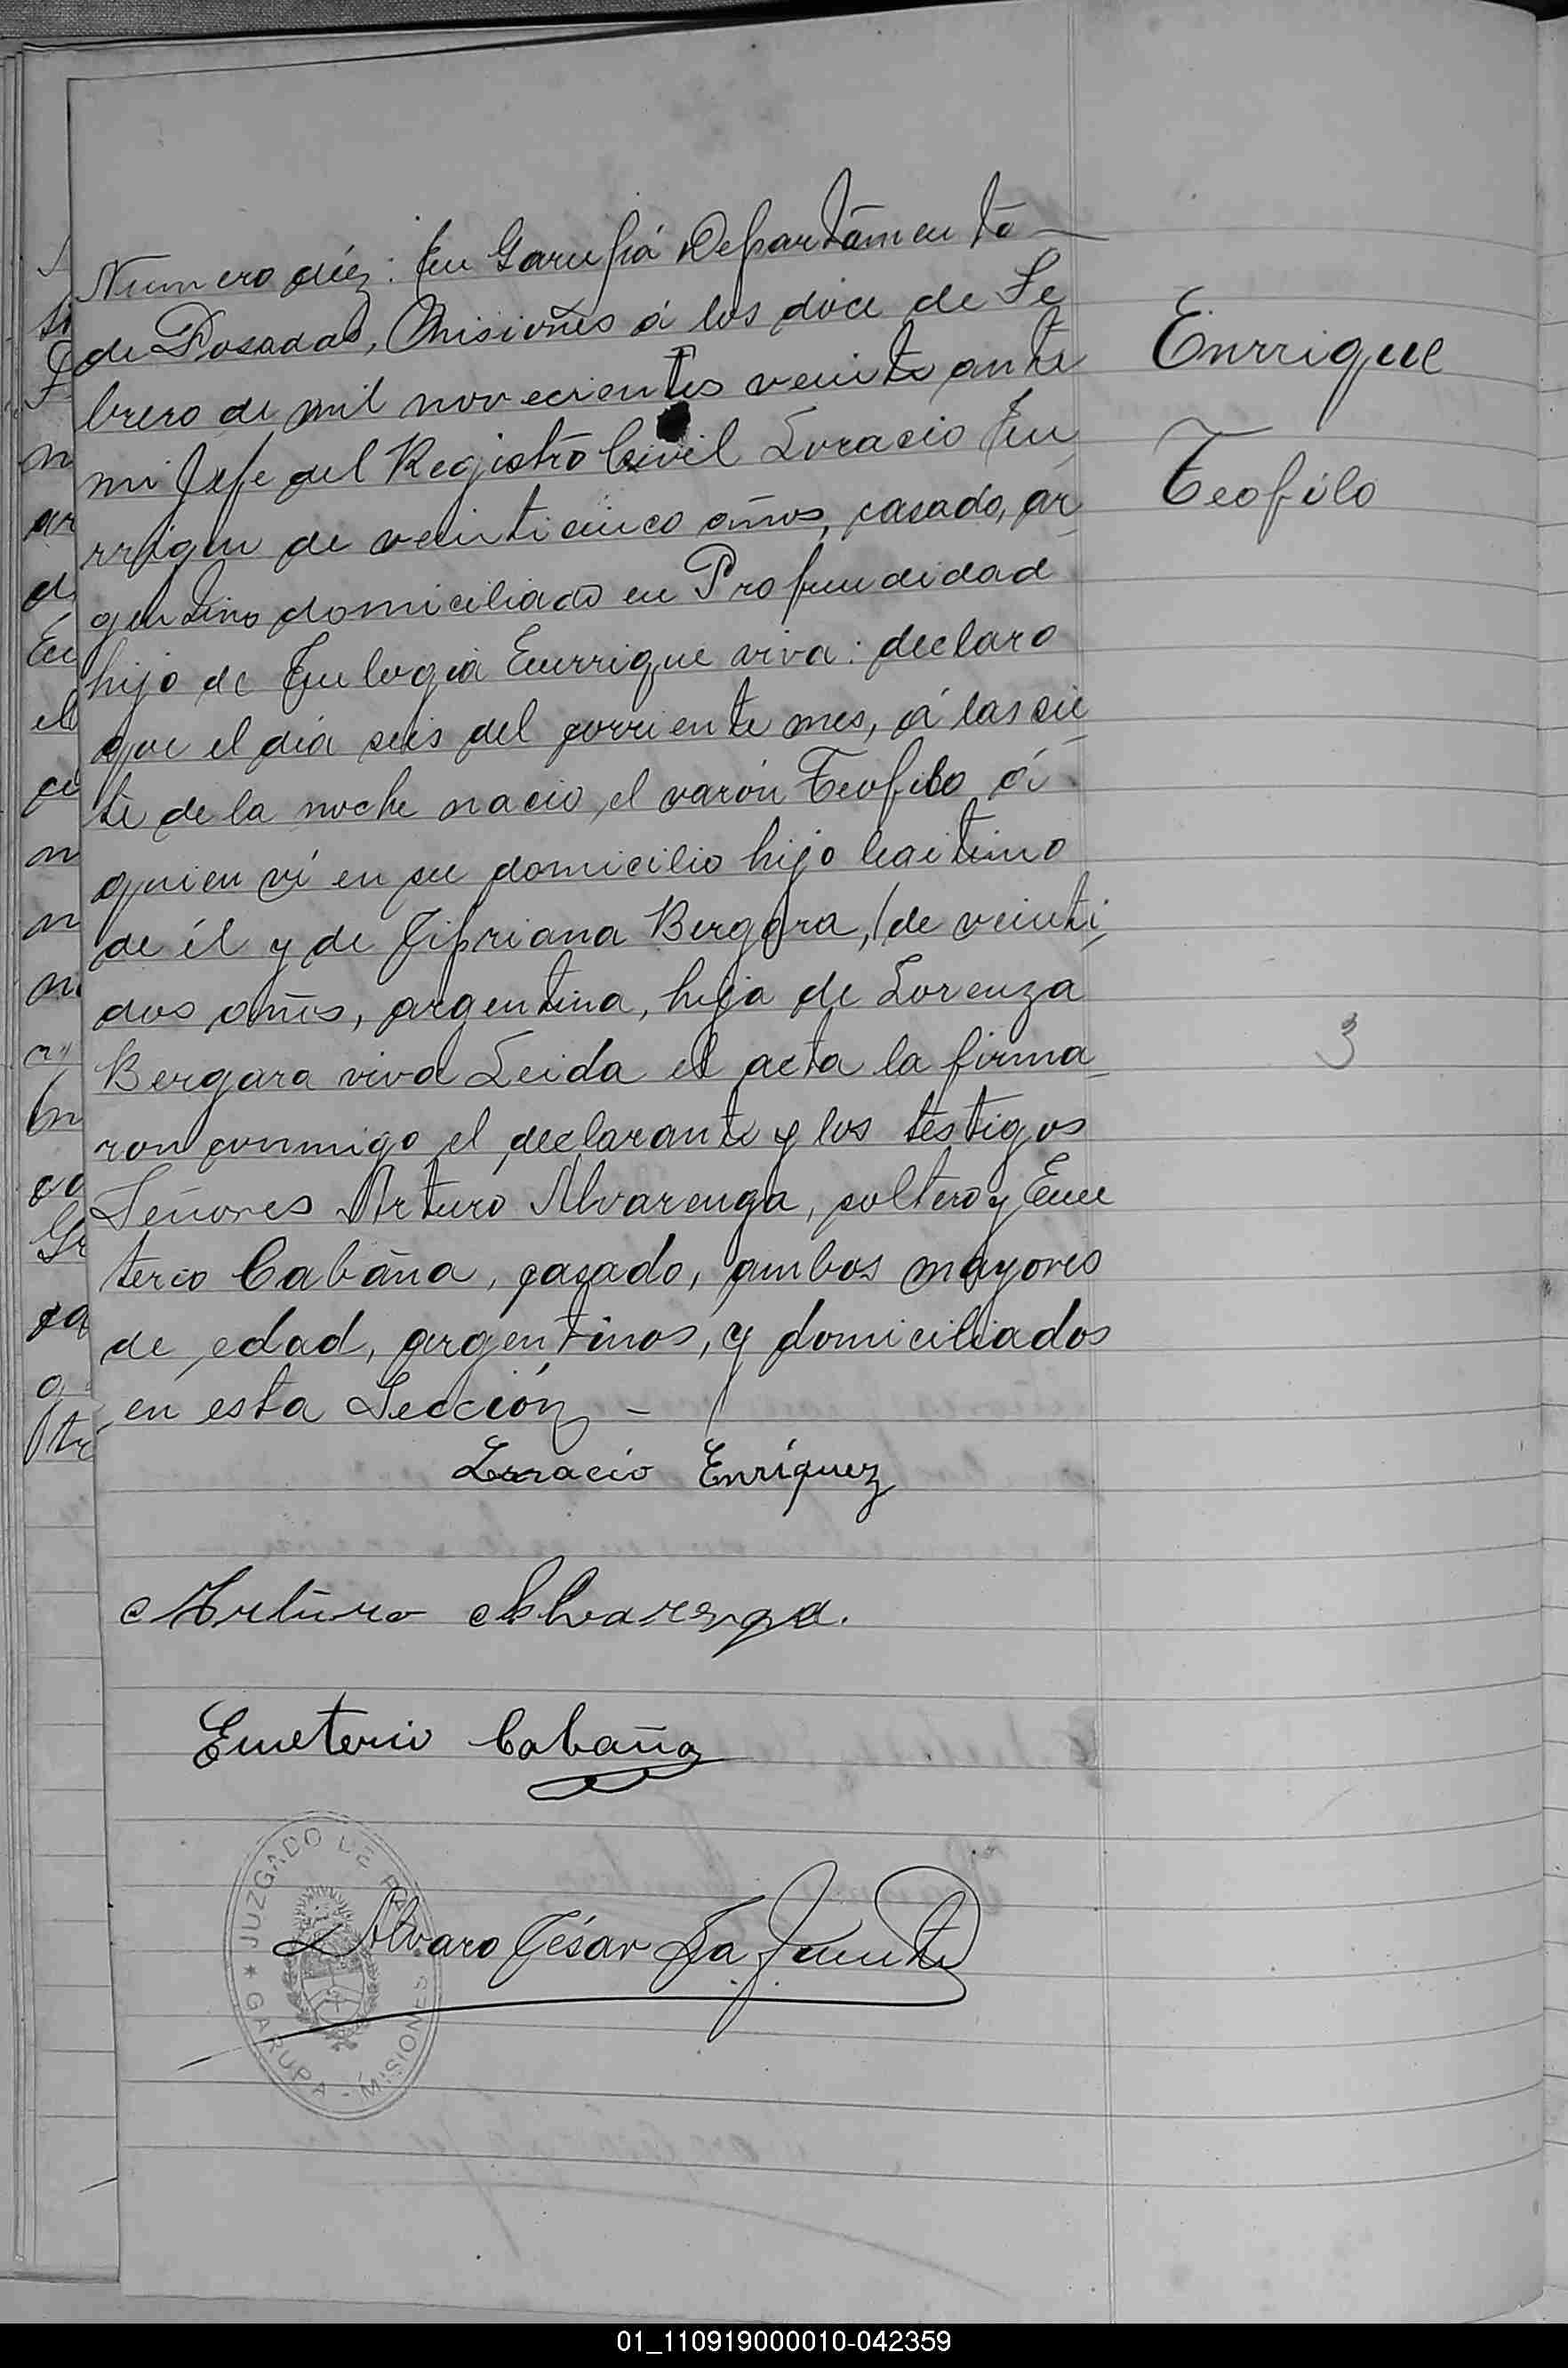 Numero diez: En Garupá Departamento
de Posadas, Misiones á los doce de Fe
brero de mil novecientos veinte ante
mi Jefe del Registro Civil Loracio En
rrique de veinticinco años, casado, ar
gentino domiciliado en Profundidad
hijo de Eulogia Enrrique viva: declaro
que el dia seis del corriente mes, á las sie
te de la noche nacio el varón Teofilo á
quien ví en su domicilio hijo legitimo
de él y de Cipriana Bergara, (de veinti
dos años, argentina, hija de Lorenza
Bergara viva Leida el acta la firma
ron conmigo el declarante y los testigos
Señores Arturo Alvarenga, soltero y Eme
terio Cabaña, casado, ambos mayores
de edad, argentinos, y domiciliados
en esta Sección -
Loracio Enríquez
Arturo Alvarenga.
Emeterio Cabaña
Alvaro César La Fuente
JUZGADO DE PAZ
GARUPA - MISIONES
Enrrique
Teofilo
3
01_110919000010-042359